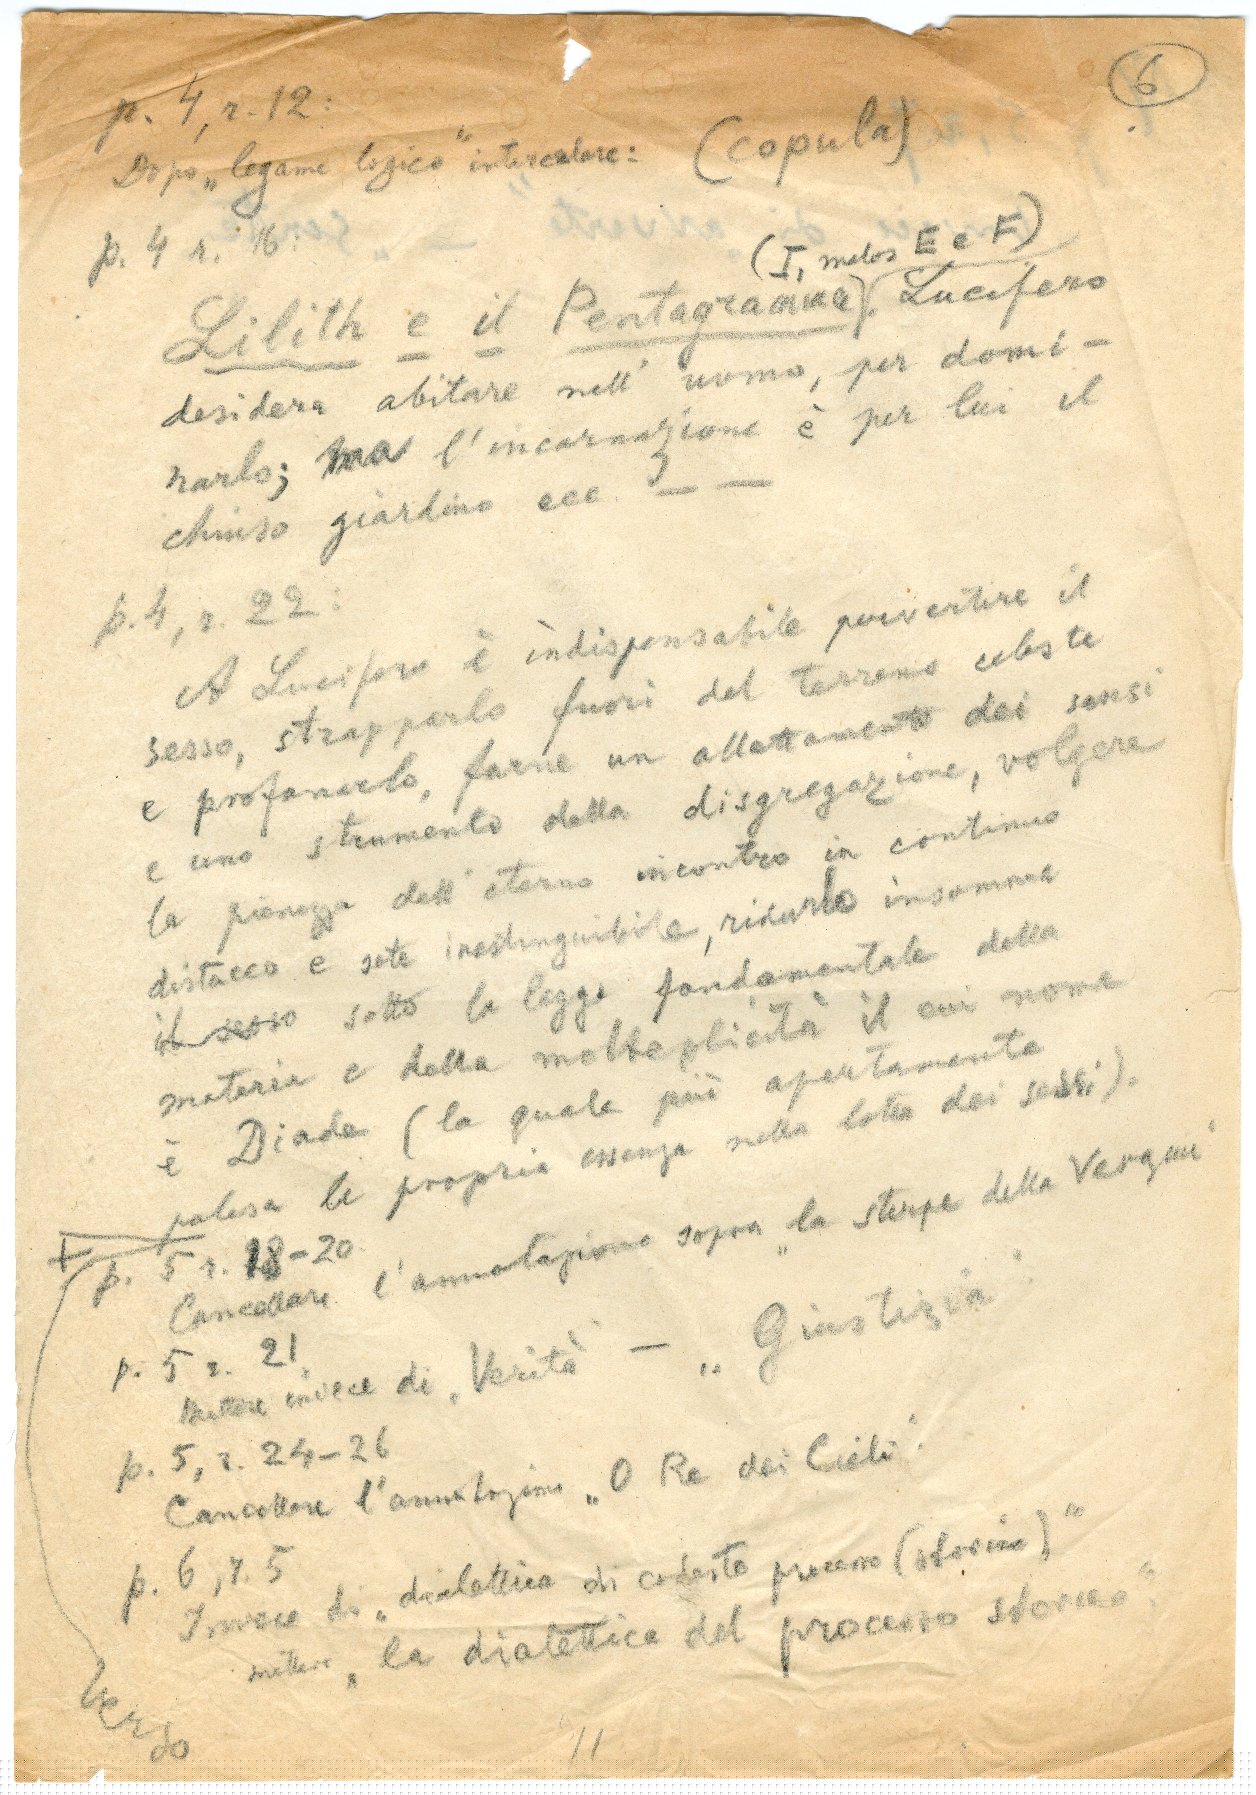 6
p. 4, r. 12:
Dopo „legame logico“ intercalare: (copula)
p. 4 r. 16:
(I, melos E e F)
Lilith e il Pentagramma). Lucifero
desidera abitare nell' uomo, per domi-
narlo; ma l'incarnazione è per lui il
chiuso giardino ecc. — —
p. 4, r. 22:
A Lucifero è indispensabile pervertire il
sesso, strapparlo fuori del terreno celeste
e profanarlo, farne un allettamento dei sensi
e uno strumento della disgregazione, volgere
la pienezza dell' eterno incontro in continuo
distacco e sete inestinguibile, ridurlo insomma
il sesso sotto la legge fondamentale della
materia e della molteplicità il cui nome
è Diade (la quale più apertamente
palesa la propria essenza nella lotta dei sessi).
p. 5 r. 18-20
Cancellare l'annotazione sopra „la stirpe della Vergine“
p. 5 r. 21.
Mettere invece di „Verità“ — „Giustizia“
p. 5, r. 24-26
Cancellare l'annotazione „O Re dei Cieli“.
p. 6, r. 5
Invece di „dialettica di codesto processo (storico)“
mettere „la dialettica del processo storico“.
11